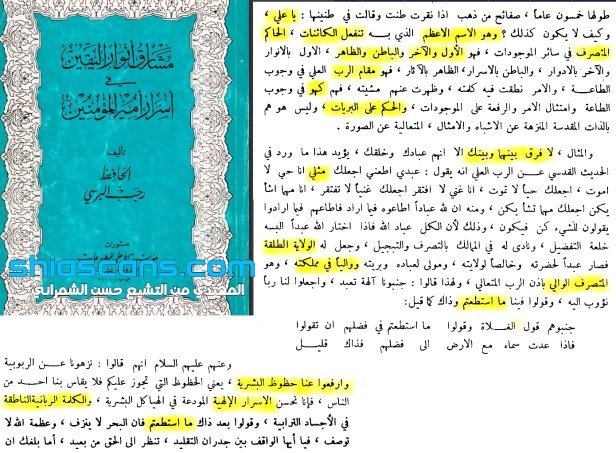 مشارق أنوار اليقين
في
أسرار أمير المؤمنين
تأليف
الحافظ
رجب البرسي
منشورات
shiascans.com
المهتدي من التشيع حسن الشمراني
طولها خمسون عاماً ، صفائح من ذهب اذا نقرت طنت وقالت في طنينها : يا علي ،
وكيف لا يكون كذلك ؟ وهو الاسم الاعظم الذي به تنفعل الكائنات ، الحاكم
المتصرف في سائر الموجودات ، فهو الأول والآخر والباطن والظاهر ، الاول بالانوار
والآخر بالادوار ، والباطن بالاسرار ، الظاهر بالآثار ، فهو مقام الرب العلي في وجوب
الطاعة ، والامر نطقت فيه كلمته ، وظهرت عنهم مشيئته ، فهم كهو في وجوب
الطاعة وامتثال الامر والرفعة على الموجودات ، والحكم على البريات ، وليس هو هم
بالذات المقدسة المنزهة عن الاشباه والامثال ، المتعالية عن الصورة .
والمثال ، لا فرق بينهما وبينك الا انهم عبادك وخلقك ، يؤيد هذا ما ورد في
الحديث القدسي عن الرب العلي انه يقول : عبدي اطعني اجعلك مثلي انا حي لا
اموت ، اجعلك حياً لا تموت ، انا غني لا افتقر اجعلك غنياً لا تفتقر ، انا مهما اشأ
يكن اجعلك مهما تشأ يكن ، ومنه ان لله عباداً اطاعوه فيما اراد فاطاعهم فيما ارادوا
يقولون للشيء كن فيكون ، وذلك لأن الكل عباد الله فاذا اختار الله عبداً البسه
خلعة التفضيل ، ونادى له في الممالك بالتصرف والتبجيل ، وجعل له الولاية الطلقة
فصار عبداً لحضرته وخالصاً لولايته ، ومولى لعباده وبريته ووالياً في مملكته ، وهو
المتصرف الوالي باذن الرب المتعالي ، ولهذا قالوا : جنبونا آلهة تعبد ، واجعلوا لنا رباً
نؤوب اليه ، وقولوا فينا ما استطعتم وذاك كما قيل:
جنبوهم قول الغلاة وقولوا ما استطعتم في فضلهم ان تقولوا
فاذا عدت سماء مع الارض الى فضلهم فذاك قليل
وعنهم عليهم السلام انهم قالوا : نزهونا عن الربوبية
وارفعوا عنا حظوظ البشرية ، يعني الحظوظ التي تجوز عليكم فلا يقاس بنا احد من
الناس ، فإنا نحسن الاسرار الإلهية المودعة في الهياكل البشرية ، والكلمة الربانية الناطقة
في الأجساد الترابية ، وقولوا بعد ذاك ما استطعتم فان البحر لا ينزف ، وعظمة الله لا
توصف ، فيا أيها الواقف بين جدران التقليد ، تنظر الى الحق من بعيد ، أما بلغك ان